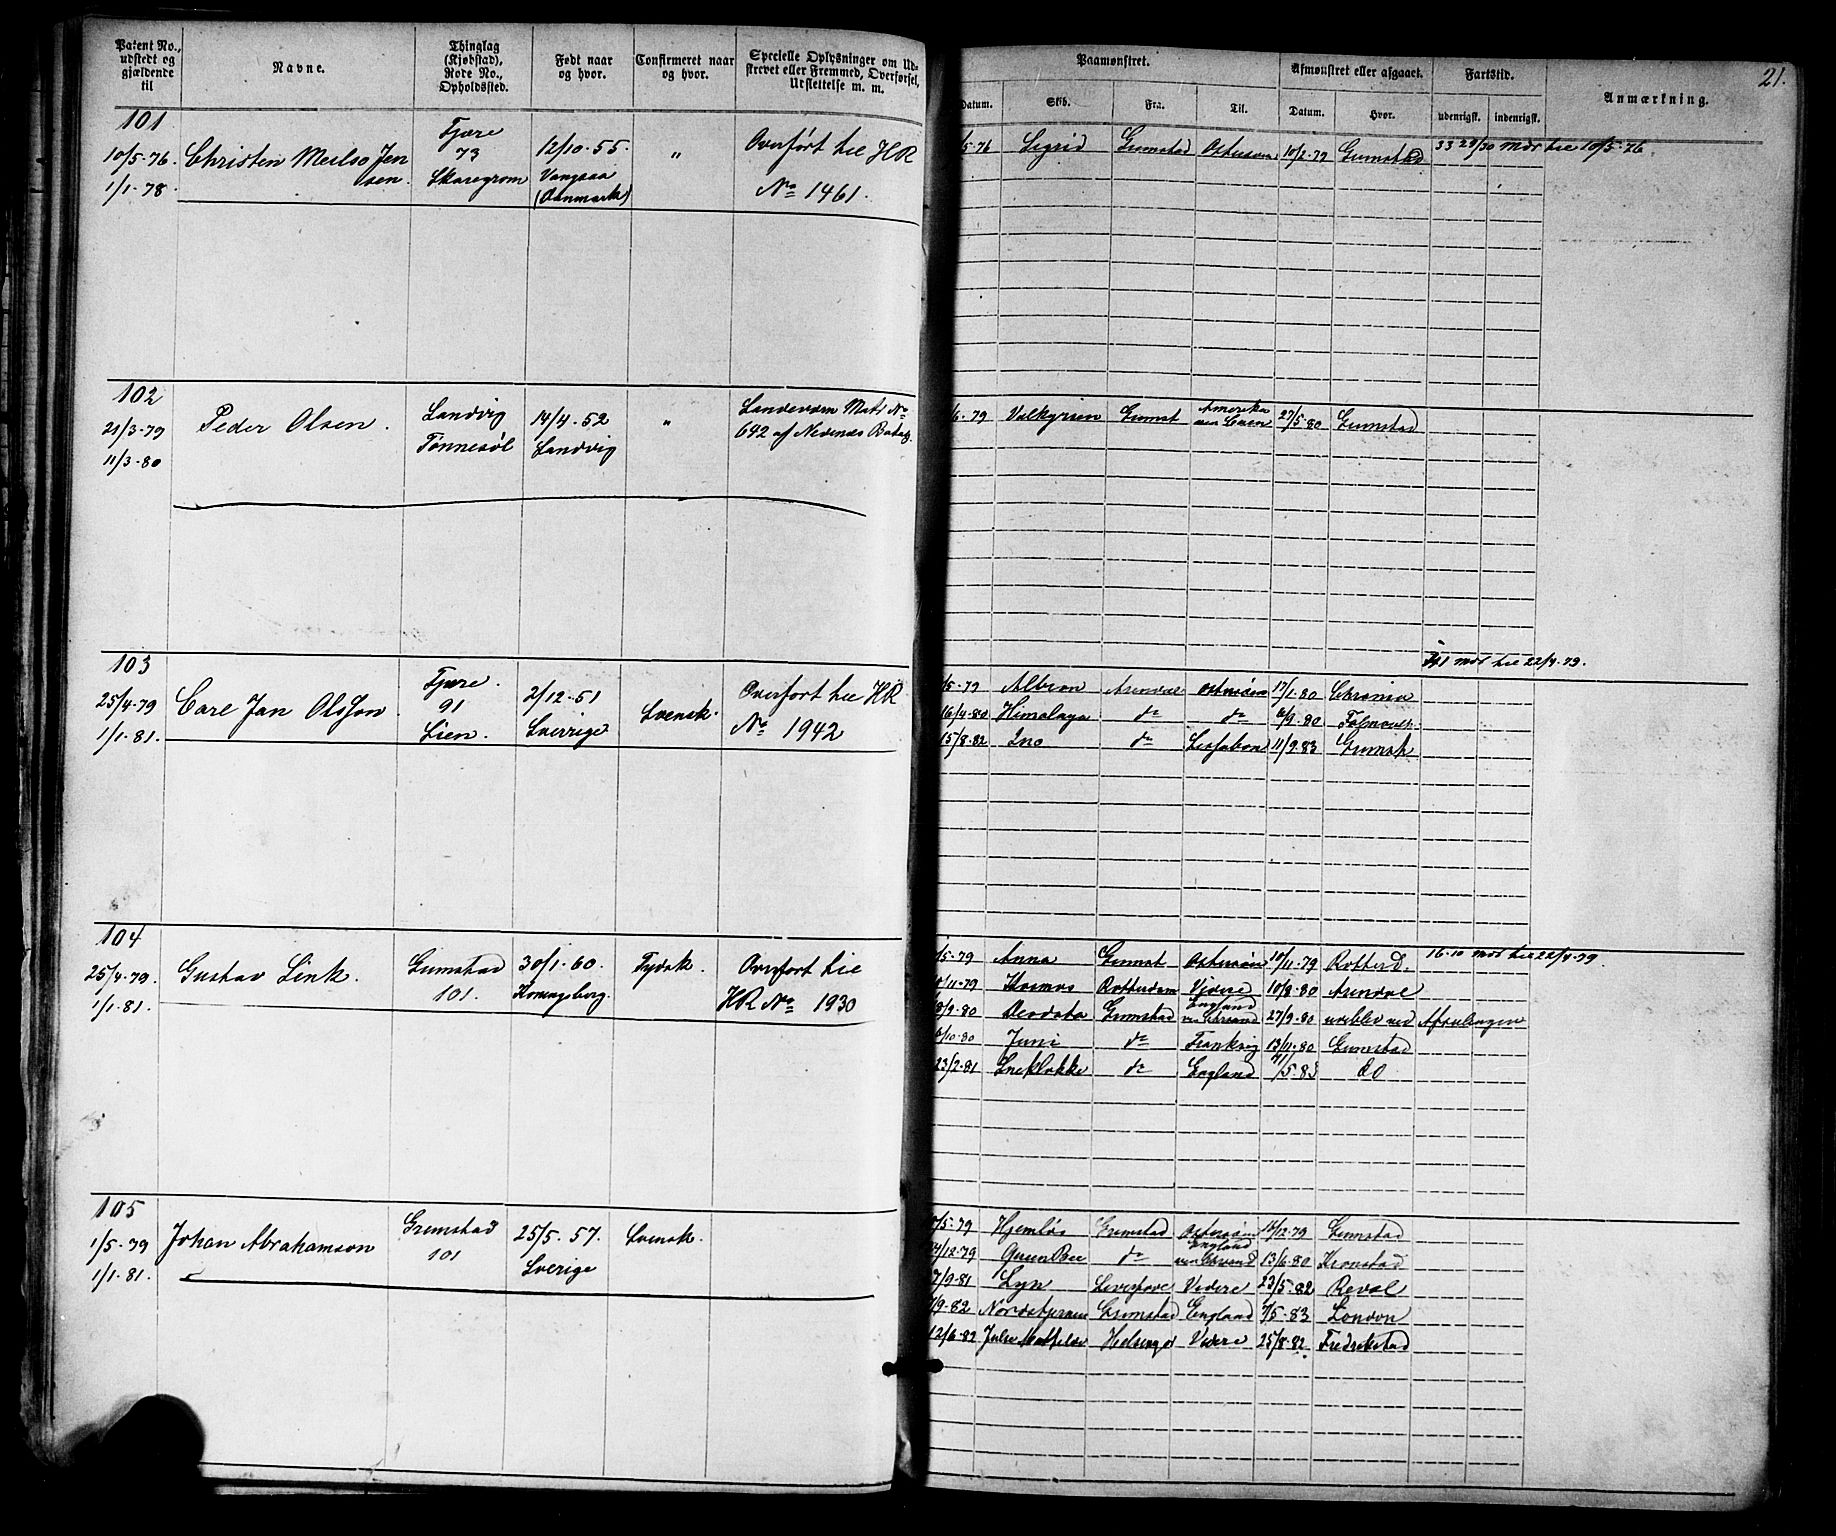 21.
Patent No., udstedt og gjældende til
Navne.
Thinglag (Kjøbstad), Rode No., Opholdssted.
Født naar og hvor.
Confirmeret naar og hvor.
Specielle Oplysninger om Udskrevet eller Fremmed, Overførsel, Udslettelse m. m.
Paamønstret.
Datum.
Skib.
Fra.
Til.
Afmønstret eller afgaaet.
Datum.
Hvor.
Fartstid.
udenrigsk.
indenrigsk.
Anmærkning.
101
10/5-76.
1/1-78.
Christen Jensen.
Fjære
73
12/10-55.
(Danmark)
"
Overført til HR
No 1461.
5-76 Sigrid Grimstad Østersøen 10/2-79 Grimstad
33 29/30 Mdr til 10/5-76
102
21/3-79
11/3-80
Peder Olsen.
Landvig
Tønnesøl
14/4-52
Landvig
"
Landeværn Matr No
642 af Nedenæs Batalj.
/6-79 Valkyrien Grimst Amerika 27/5-80 Grimstad
103
25/4-79
1/1-81.
Carl Jan Olsson
Fjære.
91
Lien.
2/12-51
Sverrige
Svensk.
Overført til HR
No 1942
Mdr til 22/4-79.
/5-79 Albion Arendal Østersøen 17/1-80 Chrania
16/4-80 Himalaya do do 6/9-80
15/8-82 Ino do Lissabon 11/9-83 Grimst
104
25/4-79.
1/1-81.
Gustav Link.
Grimstad
101.
30/1-60.
Kønigsberg.
Tydsk.
Overført til
HR No 1930
16-10 Mdr til 22/4-79.
/5-79 Anna Grimst Østersøen 10/11-79 Rotterd.
10/11-79 Kosmos Rotterdam Videre 10/8-80 Arendal
8/9-80 Deodata Grimstad England 27/9-80 udeblev ved Afseilingen
6/10-80 Juni do Frankrig 13/11-80 Grimstad
23/2-81 Sneklokke do England /5-83 do
105
1/5-79
1/1-81.
Johan Abrahamson
Grimstad
101
25/5-57.
Sverige
Svensk.
7/5-79 Hjemløs Grimstad Østersøen 14/12-79 Grimstad
14/12-79 Queen Bee do England 13/6-80 Kronstad
7/9-81 Lyn Liverpool Videre 23/5-82 Reval
/9-82 Nordstjernen Grimstad England 7/5-83 London
12/6-82 Julie Mathilde Helsingø Videre 25/8-82. Fredrikstad